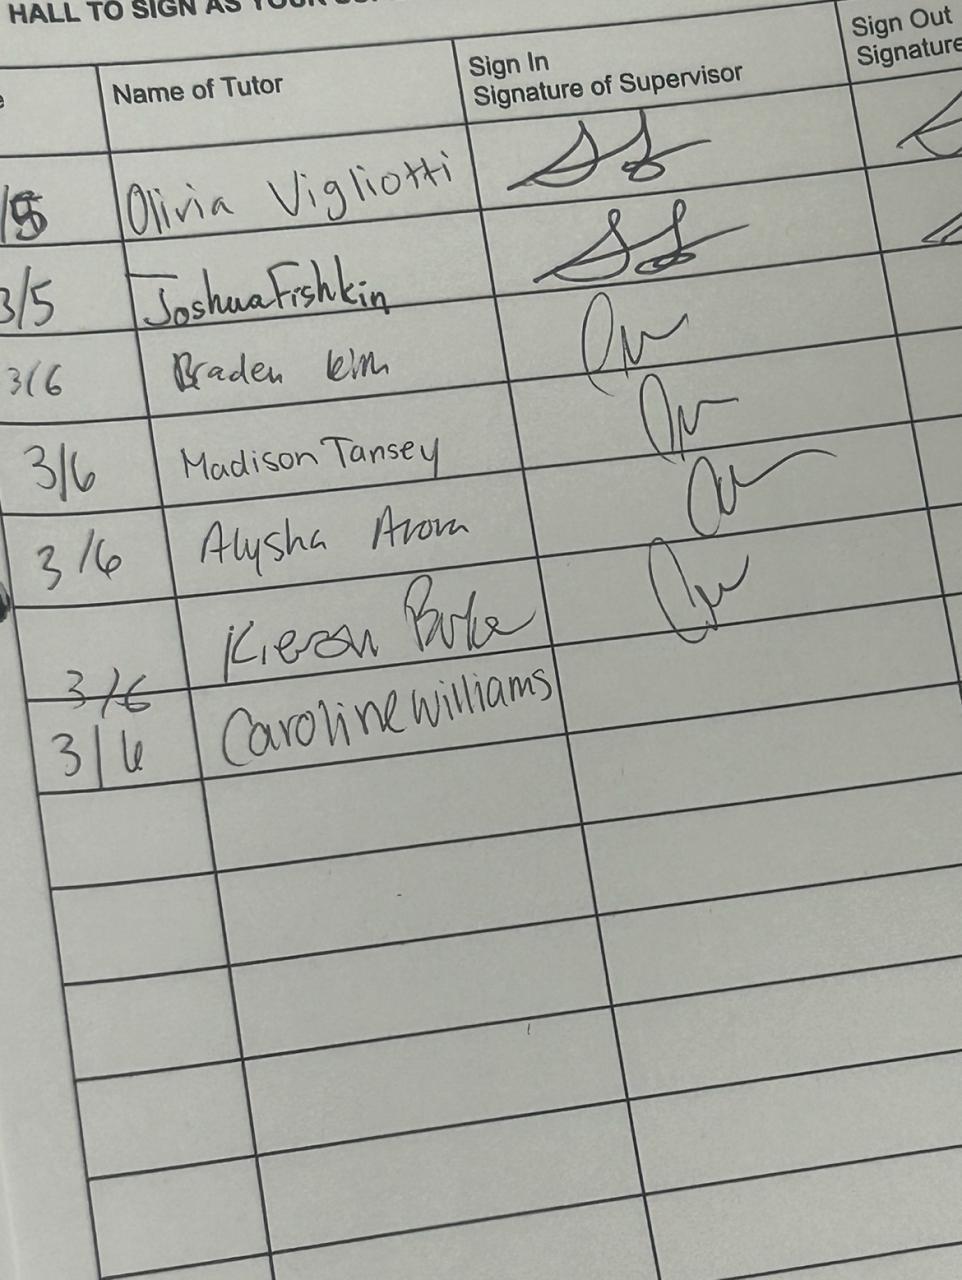 HALL TO SIGN AS YOUR
Name of Tutor
Sign In
Signature of Supervisor
Sign Out
Signature
/5 Olivia Vigliotti
3/5 Joshua Fishkin
3/6 Braden Kim
3/6 Madison Tansey
3/6 Alysha Arora
3/6 Kieran Burke
3/6 Caroline Williams